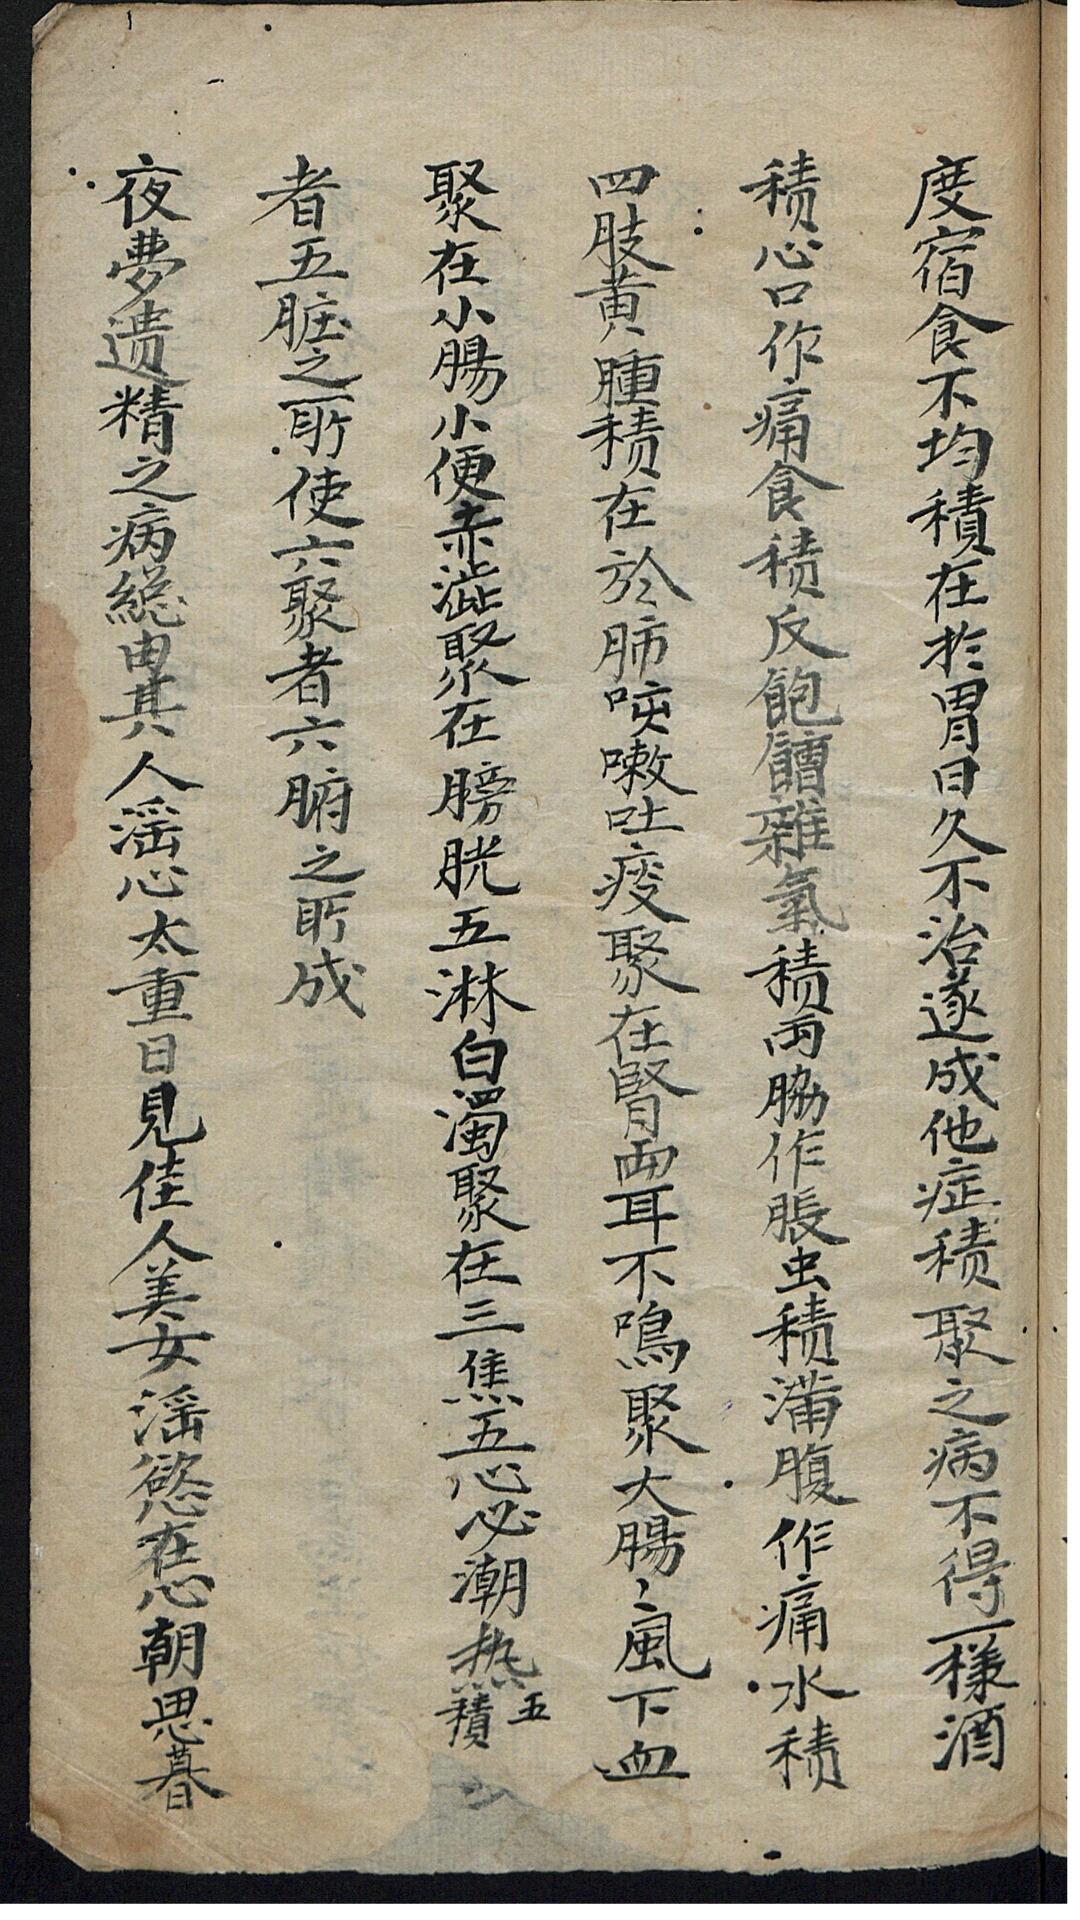 度宿食不均積在扵胃日久不治遂成他症積聚之病不得一樣酒
積心口作痛食積反飽饇雜氣積両脇作脹虫積滿腹作痛水積
四肢黄腫積在於肺咳嗽吐痰聚在腎両耳不鳴聚大腸〻風下血
聚在小腸小便赤澁聚在膀胱五淋白濁聚在三焦五心必潮热五積
者五脏之所使六聚者六腑之所成
夜夢遗精之病緫由其人滛心太重日見佳人美女滛慾在心朝思暮